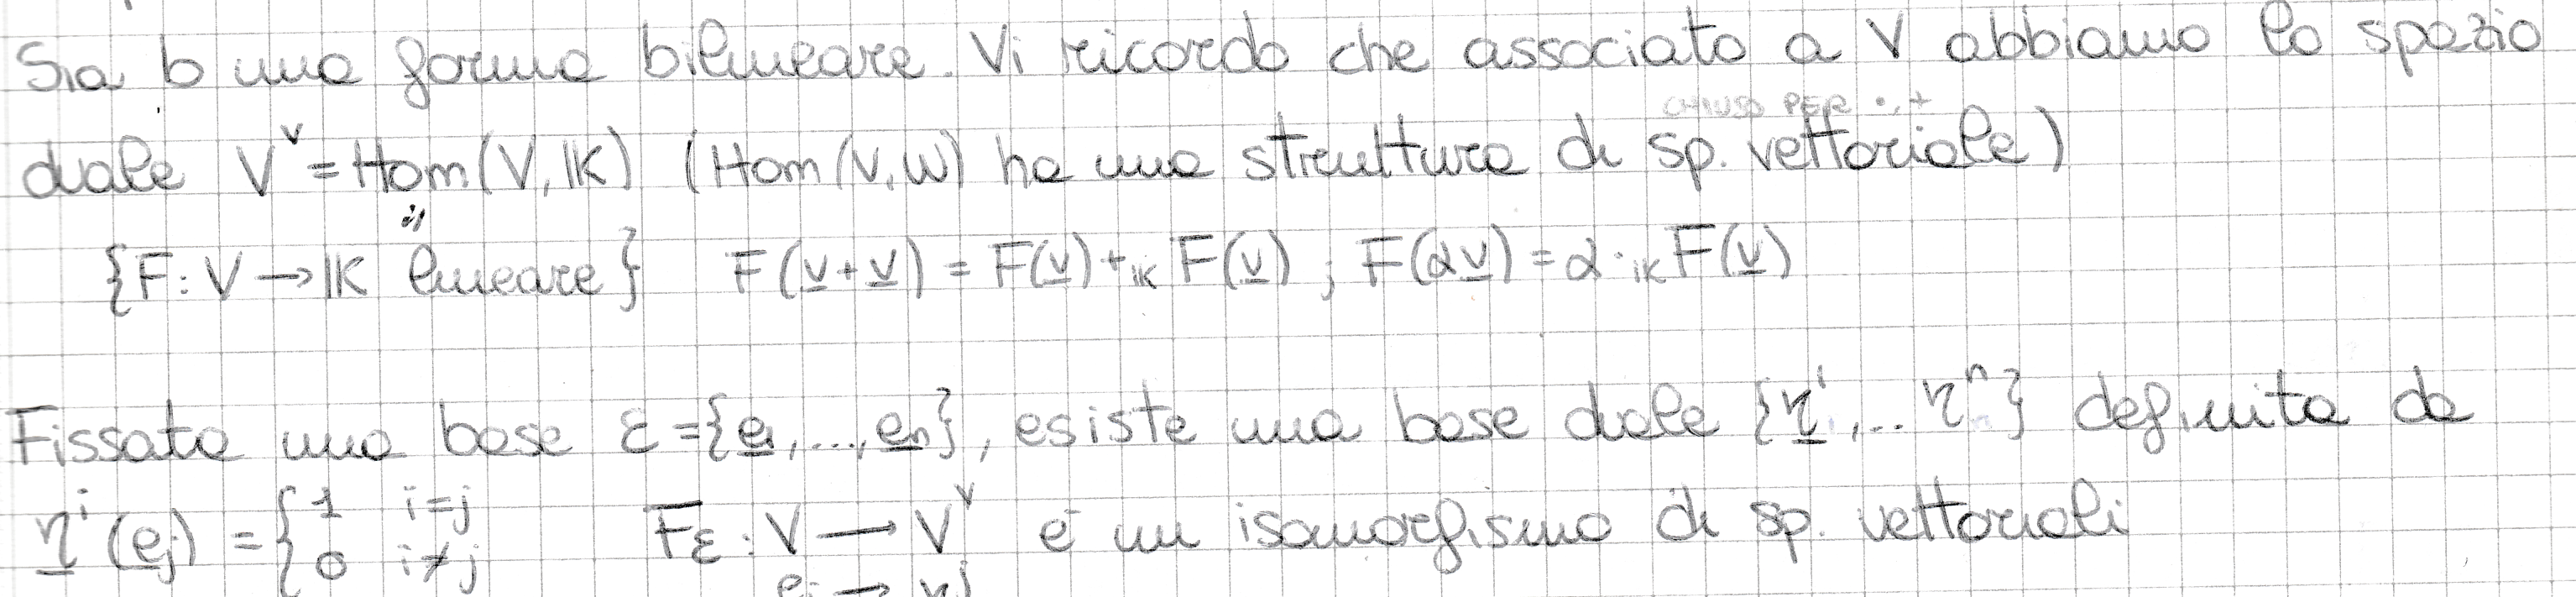 Sia b una forma bilineare. Vi ricordo che associato a V abbiamo lo spazio
CHIUSO PER ·, +
duale V^∨ = Hom(V, 𝕂) (Hom(V, W) ha una struttura di sp. vettoriale)
"
{F: V → 𝕂 lineare} F(v + v) = F(v) +_𝕂 F(v) ; F(αv) = α ·_𝕂 F(v)
Fissata una base ε = {e₁, ..., eₙ}, esiste una base duale {η¹, .. ηⁿ} definita da
ηⁱ(eⱼ) = { 1 i=j F_ε : V → V^∨ è un isomorfismo di sp. vettoriali
0 i≠j
eⱼ → ηʲ